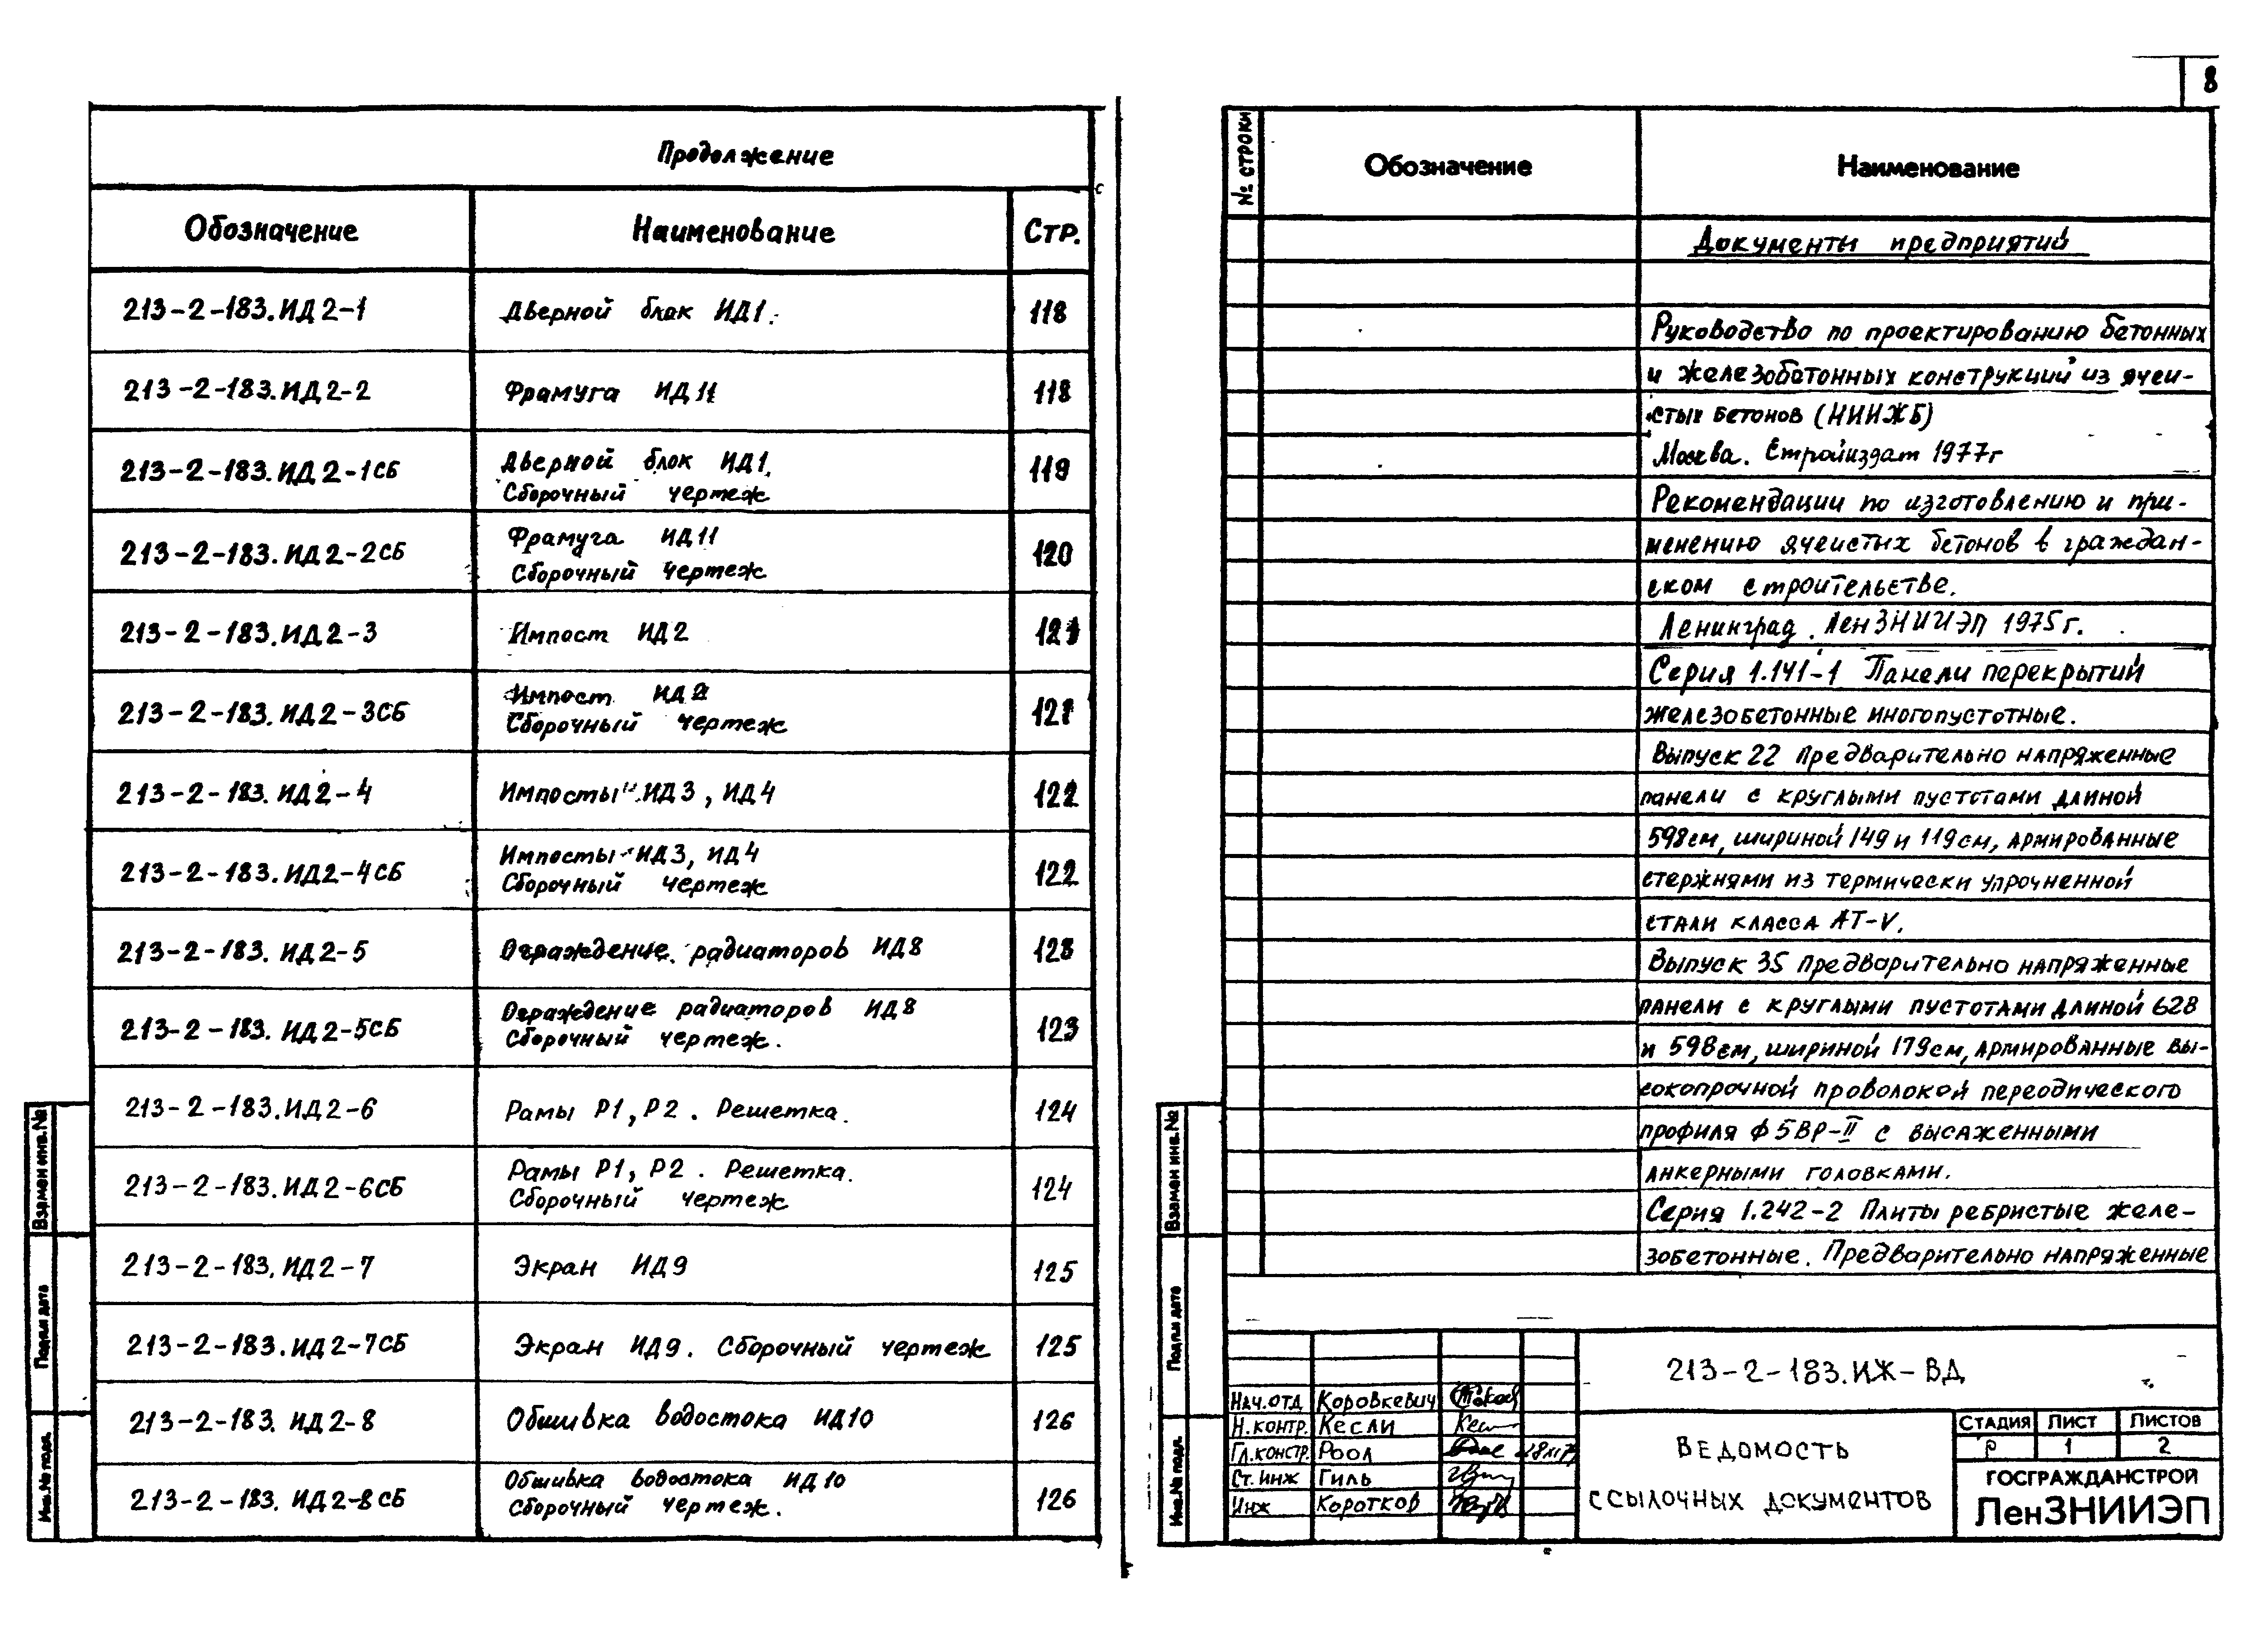 8
Продолжение
Обозначение Наименование Стр.
213-2-183.ИД2-1 Дверной блок ИД1. 118
213-2-183.ИД2-2 Фрамуга ИД11 118
213-2-183.ИД2-1СБ Дверной блок ИД1. 119
Сборочный чертеж
213-2-183.ИД2-2СБ Фрамуга ИД11 120
Сборочный чертеж
213-2-183.ИД2-3 Импост ИД2 121
213-2-183.ИД2-3СБ Импост ИД2 121
Сборочный чертеж
213-2-183.ИД2-4 Импосты ИД3, ИД4 122
213-2-183.ИД2-4СБ Импосты ИД3, ИД4 122
Сборочный чертеж
213-2-183.ИД2-5 Ограждение радиаторов ИД8 123
213-2-183.ИД2-5СБ Ограждение радиаторов ИД8 123
Сборочный чертеж.
213-2-183.ИД2-6 Рамы Р1, Р2. Решетка. 124
213-2-183.ИД2-6СБ Рамы Р1, Р2. Решетка. 124
Сборочный чертеж
213-2-183.ИД2-7 Экран ИД9 125
213-2-183.ИД2-7СБ Экран ИД9. Сборочный чертеж 125
213-2-183.ИД2-8 Обшивка водостока ИД10 126
213-2-183.ИД2-8СБ Обшивка водостока ИД10 126
Сборочный чертеж.
Взамен инв.№
Подп.и дата
Инв.№ подл.
№ строки Обозначение Наименование
Документы предприятий
Руководство по проектированию бетонных
и железобетонных конструкций из ячеи-
стых бетонов (НИИЖБ)
Москва. Стройиздат 1977г
Рекомендации по изготовлению и при-
менению ячеистых бетонов в граждан-
ском строительстве.
Ленинград. ЛенЗНИИЭП 1975г.
Серия 1.141-1 Панели перекрытий
железобетонные многопустотные.
Выпуск 22 Предварительно напряженные
панели с круглыми пустотами длиной
598см, шириной 149 и 119см, армированные
стержнями из термически упрочненной
стали класса АТ-V.
Выпуск 35 Предварительно напряженные
панели с круглыми пустотами длиной 628
и 598см, шириной 179см, армированные вы-
сокопрочной проволокой переодического
профиля Ф5ВР-II с высаженными
анкерными головками.
Серия 1.242-2 Плиты ребристые желе-
зобетонные. Предварительно напряженные
Взамен инв.№
Подп.и дата
Инв.№ подл.
213-2-183.ИЖ-ВД
Нач.отд Коровкевич
Н.контр. Кесли
Гл.констр. Роол
Ст.инж Гиль
Инж Коротков
Ведомость
ссылочных документов
Стадия Лист Листов
Р 1 2
ГОСГРАЖДАНСТРОЙ
ЛенЗНИИЭП